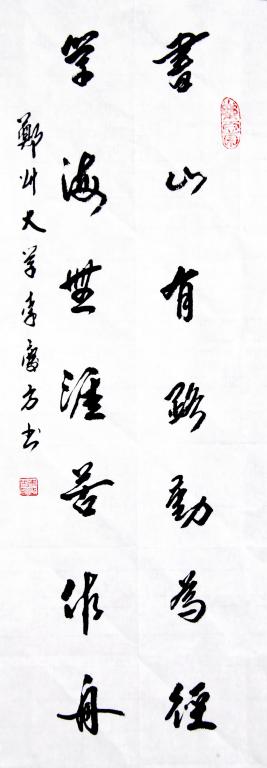 書山有路勤為徑
学海無涯苦作舟
鄭州大学李慶方书